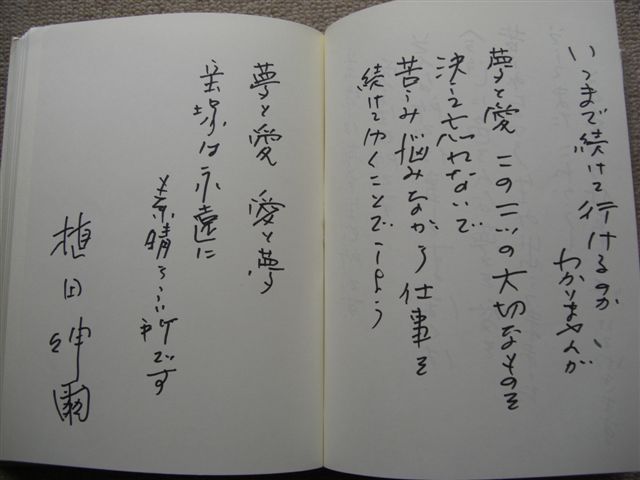 いつまで続けて行けるのか
わかりませんが
夢と愛 この二つの大切なものを
決して忘れないで
苦しみ悩みながら仕事を
続けてゆくことでしょう
夢と愛 愛と夢
宝塚は永遠に
素晴らしい所です
植田紳爾